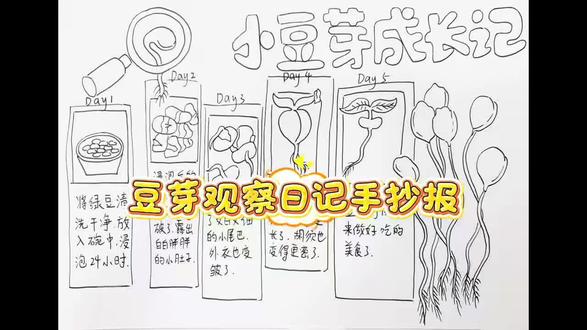 小豆芽成长记
Day1
Day2
Day3
Day4
Day5
将绿豆清
洗干净放
入碗中,浸
泡24小时.
破了.露出
白白胖胖
的小肚子.
的小尾巴.
外衣也变
皱了.
长了.胡须也
变得更密了.
来做好吃的
美食了.
豆芽观察日记手抄报